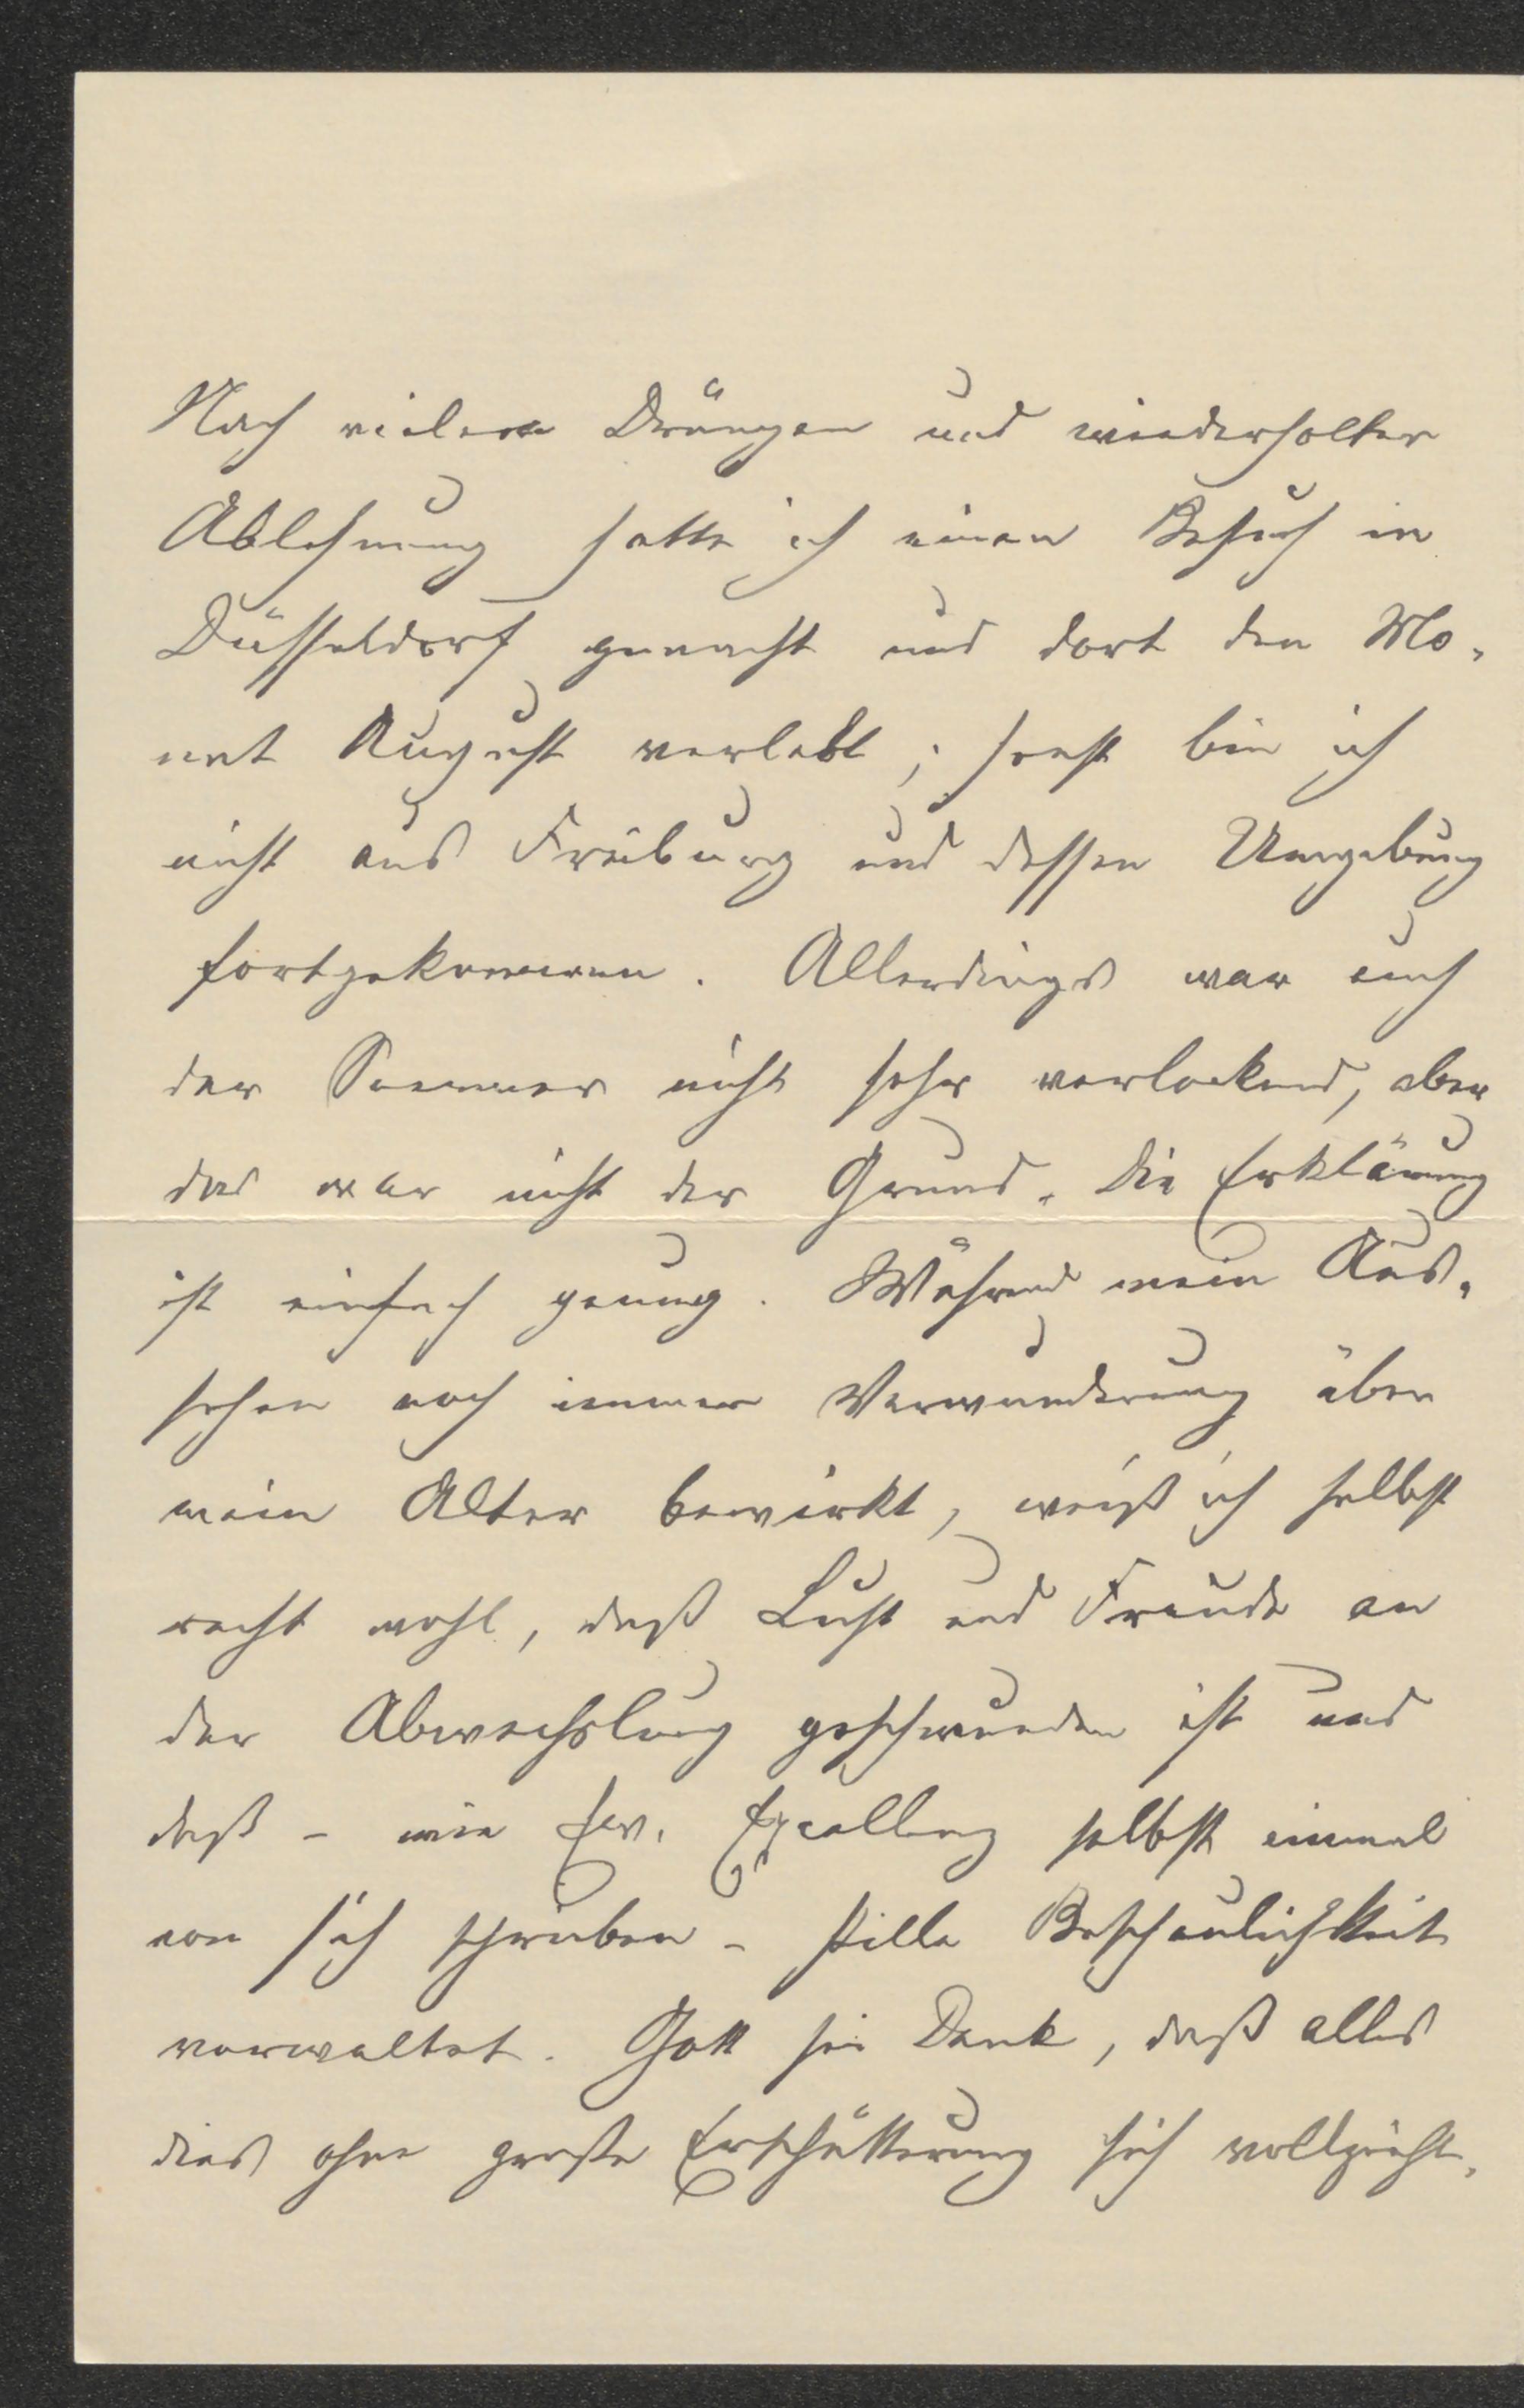 Nach vielem Drängen und wiederholter
Ablehnung hatte ich einen Besuch in
Düsseldorf gemacht und dort den Mo-
nat August verlebt; sonst bin ich
nicht aus Freiburg und dessen Umgebung
fortgekommen. Allerdings war auch
der Sommer nicht sehr verlockend, aber
das war nicht der Grund. Die Erklärung
ist einfach genung. Während mein Aus-
sehen noch immer Verwunderung über
mein Alter bewirkt, weiß ich selbst
recht wohl, daß Lust und Freude an
der Abwechslung geschwunden ist und
daß – wie Ew. Excellenz selbst einmal
von sich schrieben – stille Beschaulichkeit
vorwaltet. Gott sei Dank, daß alles
dies ohne große Erschütterung sich vollzieht.